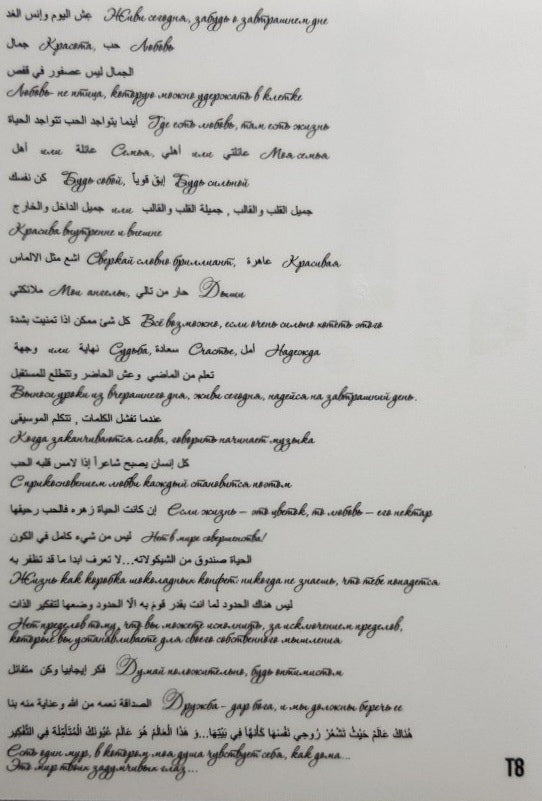 عش اليوم وانس الغد Живи сегодня, забудь о завтрашнем дне
جمال Красота, حب Любовь
الجمال ليس عصفور في قفص
Любовь- не птица, которую можно удержать в клетке
أينما يتواجد الحب تتواجد الحياة Где есть любовь, там есть жизнь
أهل или عائلة Семья, أهلي или عائلتي Моя семья
كن نفسك Будь собой, إبق قوياً Будь сильной
جميل الداخل والخارج или جميل القلب والقالب , جميلة القلب والقالب
Красива внутренне и внешне
اشع مثل الالماس Сверкай словно бриллиант, عاهرة Красивая
ملائكتي Мои ангелы, حار من تالي Дыши
كل شئ ممكن اذا تمنيت بشدة Всё возможно, если очень сильно хотеть этого
وجهة или نهاية Судьба, سعادة Счастье, أمل Надежда
تعلم من الماضي وعش الحاضر وتتطلع للمستقبل
Выноси уроки из вчерашнего дня, живи сегодня, надейся на завтрашний день.
عندما تفشل الكلمات , تتكلم الموسيقى
Когда заканчиваются слова, говорить начинает музыка
كل إنسان يصبح شاعراً إذا لامس قلبه الحب
С прикосновением любви каждый становится поэтом
إن كانت الحياة زهره فالحب رحيقها Если жизнь – это цветок, то любовь – его нектар
ليس من شيء كامل في الكون Нет в мире совершенства!
الحياة صندوق من الشيكولاته...لا تعرف ابدا ما قد تظفر به
Жизнь как коробка шоколадных конфет: никогда не знаешь, что тебе попадется
ليس هناك الحدود لما انت بقدر قوم به الّا الحدود وضعها لتفكير الذات
Нет пределов тому, что вы можете исполнить, за исключением пределов,
которые вы устанавливаете для своего собственного мышления
فكر إيجابيا وكن متفائل Думай положительно, будь оптимистом
الصداقة نعمه من الله وعناية منه بنا Дружба – дар бога, и мы должны беречь ее
هُنَاكَ عَالَمٌ حَيْثُ تَشْعُرُ رُوحِي نَفْسَهَا كَأَنَّهَا فِي بَيْتِهَا...وَ هَذَا الْعَالَمُ هُوَ عَالَمُ عُيُونِكَ الْمُتَأَمِّلَة فِي التَّفْكِير
Есть один мир, в котором моя душа чувствует себя, как дома...
Это мир твоих задумчивых глаз...
T8